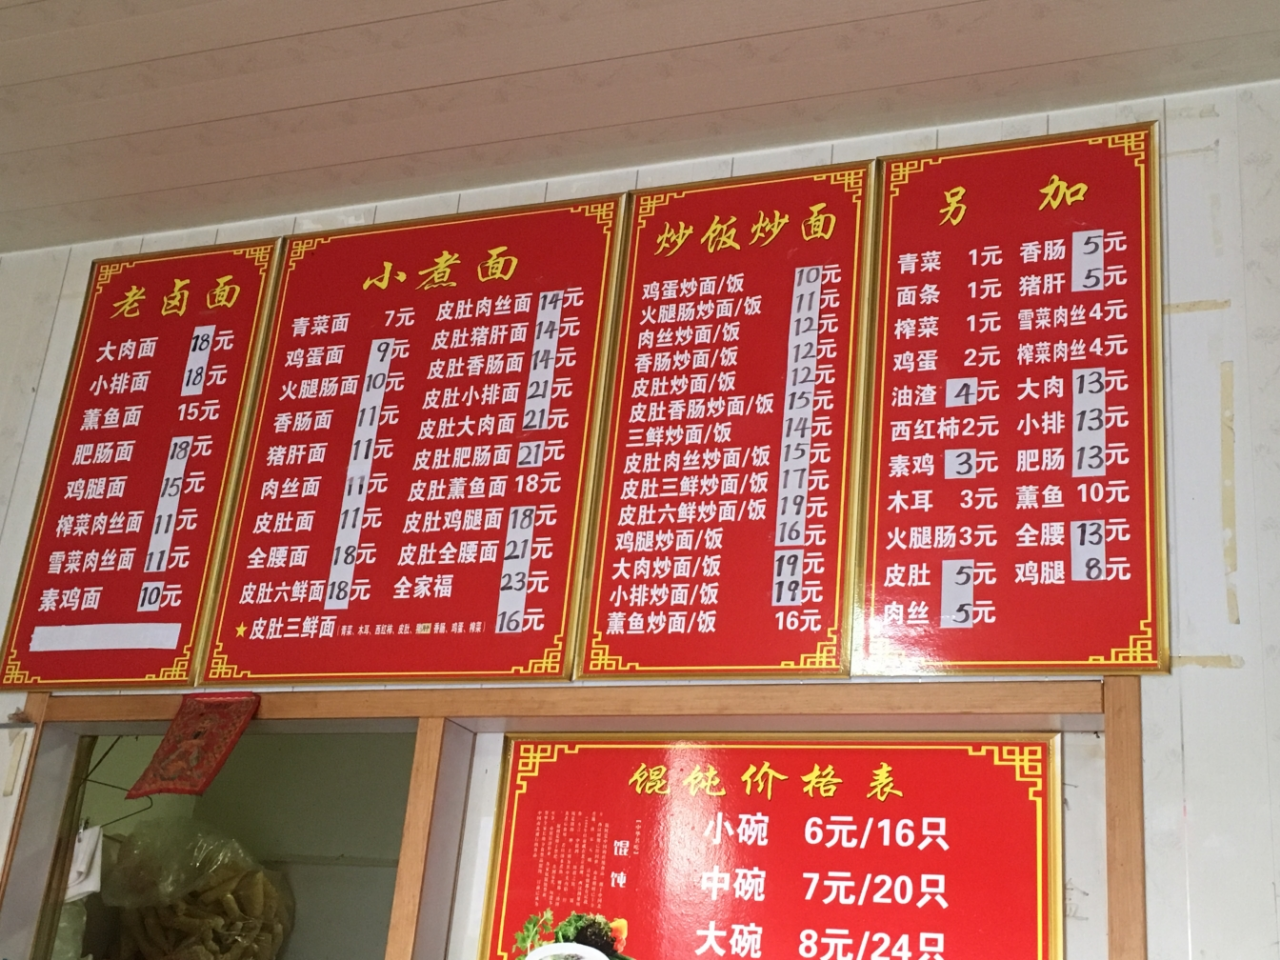 老卤面
大肉面 18元
小排面 18元
薰鱼面 15元
肥肠面 18元
鸡腿面 15元
榨菜肉丝面 11元
雪菜肉丝面 11元
素鸡面 10元
小煮面
青菜面 7元
鸡蛋面 9元
火腿肠面 10元
香肠面 11元
猪肝面 11元
肉丝面 11元
皮肚面 11元
全腰面 18元
皮肚六鲜面 18元
皮肚肉丝面 14元
皮肚猪肝面 14元
皮肚香肠面 14元
皮肚小排面 21元
皮肚大肉面 21元
皮肚肥肠面 21元
皮肚薰鱼面 18元
皮肚鸡腿面 18元
皮肚全腰面 21元
全家福 23元
★皮肚三鲜面 16元
炒饭炒面
鸡蛋炒面/饭 10元
火腿肠炒面/饭 11元
肉丝炒面/饭 12元
香肠炒面/饭 12元
皮肚炒面/饭 12元
皮肚香肠炒面/饭 15元
三鲜炒面/饭 14元
皮肚肉丝炒面/饭 15元
皮肚三鲜炒面/饭 17元
皮肚六鲜炒面/饭 19元
鸡腿炒面/饭 16元
大肉炒面/饭 19元
小排炒面/饭 19元
薰鱼炒面/饭 16元
另加
青菜 1元
面条 1元
榨菜 1元
鸡蛋 2元
油渣 4元
西红柿2元
素鸡 3元
木耳 3元
火腿肠3元
皮肚 5元
肉丝 5元
香肠 5元
猪肝 5元
雪菜肉丝4元
榨菜肉丝4元
大肉 13元
小排 13元
肥肠 13元
薰鱼 10元
全腰 13元
鸡腿 8元
馄饨价格表
馄饨
小碗 6元/16只
中碗 7元/20只
大碗 8元/24只